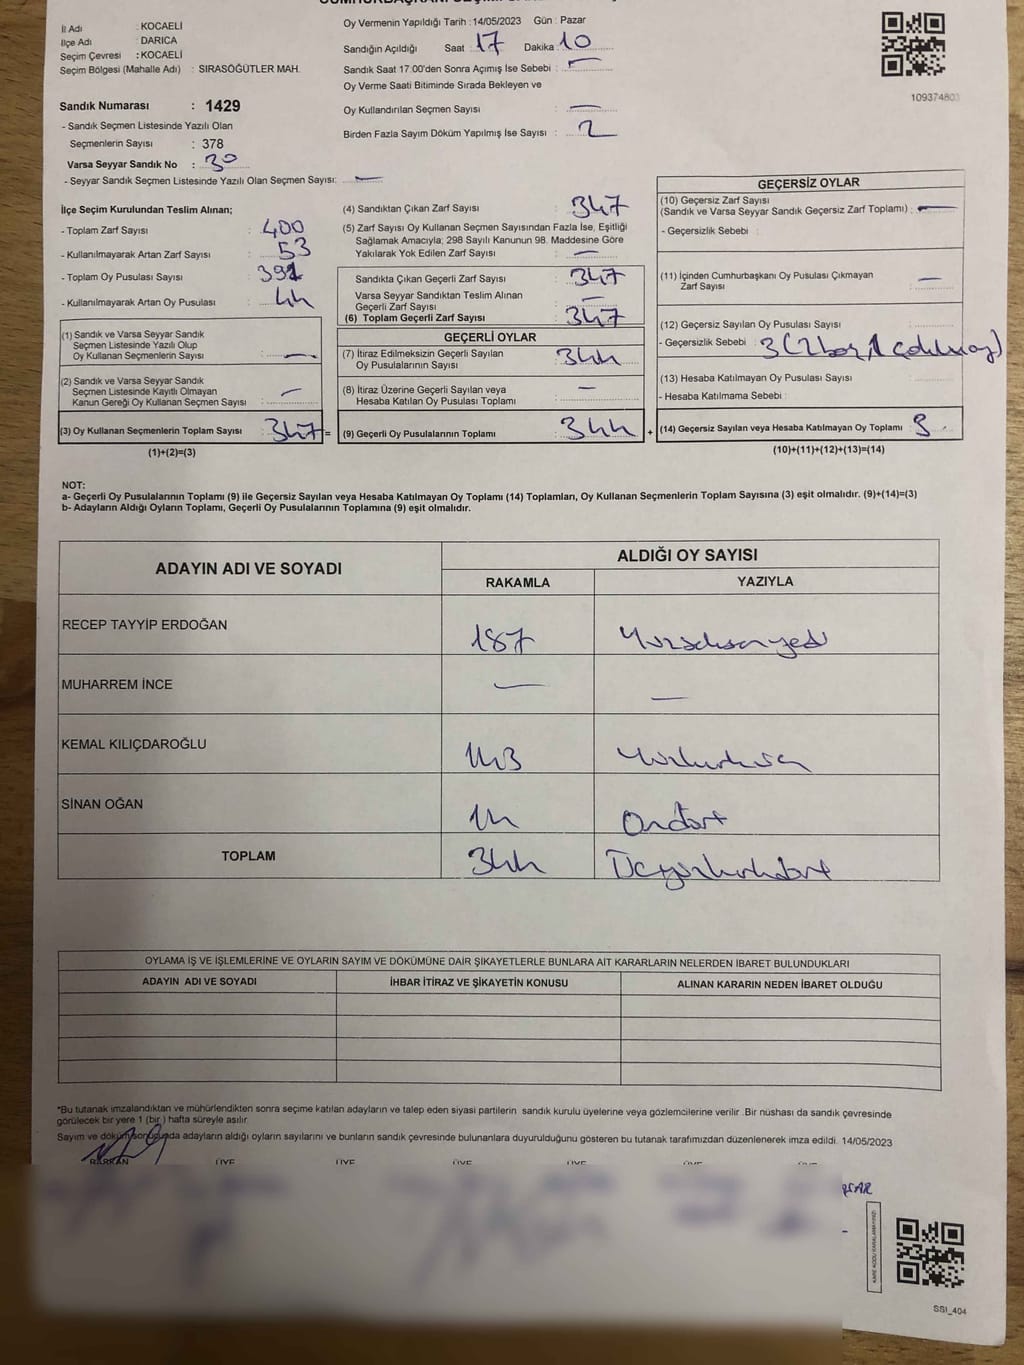 İl Adı : KOCAELİ
İlçe Adı : DARICA
Seçim Çevresi : KOCAELİ
Seçim Bölgesi (Mahalle Adı) : SIRASÖĞÜTLER MAH.
Sandık Numarası : 1429
- Sandık Seçmen Listesinde Yazılı Olan
Seçmenlerin Sayısı : 378
Varsa Seyyar Sandık No : 30
- Seyyar Sandık Seçmen Listesinde Yazılı Olan Seçmen Sayısı: —
Oy Vermenin Yapıldığı Tarih : 14/05/2023 Gün : Pazar
Sandığın Açıldığı Saat 17 Dakika : 10
Sandık Saat 17:00'den Sonra Açımış İse Sebebi : —
Oy Verme Saati Bitiminde Sırada Bekleyen ve
Oy Kullandırılan Seçmen Sayısı : —
Birden Fazla Sayım Döküm Yapılmış İse Sayısı : 2
109374803
İlçe Seçim Kurulundan Teslim Alınan;
- Toplam Zarf Sayısı : 400
- Kullanılmayarak Artan Zarf Sayısı : 53
- Toplam Oy Pusulası Sayısı : 391
- Kullanılmayarak Artan Oy Pusulası : 44
(1) Sandık ve Varsa Seyyar Sandık
Seçmen Listesinde Yazılı Olup
Oy Kullanan Seçmenlerin Sayısı : —
(2) Sandık ve Varsa Seyyar Sandık
Seçmen Listesinde Kayıtlı Olmayan
Kanun Gereği Oy Kullanan Seçmen Sayısı : —
(3) Oy Kullanan Seçmenlerin Toplam Sayısı : 347 =
(1)+(2)=(3)
(4) Sandıktan Çıkan Zarf Sayısı : 347
(5) Zarf Sayısı Oy Kullanan Seçmen Sayısından Fazla İse, Eşitliği
Sağlamak Amacıyla; 298 Sayılı Kanunun 98. Maddesine Göre
Yakılarak Yok Edilen Zarf Sayısı : —
Sandıkta Çıkan Geçerli Zarf Sayısı : 347
Varsa Seyyar Sandıktan Teslim Alınan
Geçerli Zarf Sayısı : —
(6) Toplam Geçerli Zarf Sayısı : 347
GEÇERLİ OYLAR
(7) İtiraz Edilmeksizin Geçerli Sayılan
Oy Pusulalarının Sayısı : 344
(8) İtiraz Üzerine Geçerli Sayılan veya
Hesaba Katılan Oy Pusulası Toplamı : —
(9) Geçerli Oy Pusulalarının Toplamı : 344 +
GEÇERSİZ OYLAR
(10) Geçersiz Zarf Sayısı
(Sandık ve Varsa Seyyar Sandık Geçersiz Zarf Toplamı) : —
- Geçersizlik Sebebi :
(11) İçinden Cumhurbaşkanı Oy Pusulası Çıkmayan
Zarf Sayısı : —
(12) Geçersiz Sayılan Oy Pusulası Sayısı :
- Geçersizlik Sebebi : 3 (2 boş, 1
(13) Hesaba Katılmayan Oy Pusulası Sayısı :
- Hesaba Katılmama Sebebi :
(14) Geçersiz Sayılan veya Hesaba Katılmayan Oy Toplamı : 3
(10)+(11)+(12)+(13)=(14)
NOT:
a- Geçerli Oy Pusulalarının Toplamı (9) ile Geçersiz Sayılan veya Hesaba Katılmayan Oy Toplamı (14) Toplamları, Oy Kullanan Seçmenlerin Toplam Sayısına (3) eşit olmalıdır. (9)+(14)=(3)
b- Adayların Aldığı Oyların Toplamı, Geçerli Oy Pusulalarının Toplamına (9) eşit olmalıdır.
ADAYIN ADI VE SOYADI
ALDIĞI OY SAYISI
RAKAMLA YAZIYLA
RECEP TAYYİP ERDOĞAN 187 Yüzseksenyedi
MUHARREM İNCE — —
KEMAL KILIÇDAROĞLU 143 Yüzkırküç
SİNAN OĞAN 14 Ondört
TOPLAM 344 Üçyüzkırkdört
OYLAMA İŞ VE İŞLEMLERİNE VE OYLARIN SAYIM VE DÖKÜMÜNE DAİR ŞİKAYETLERLE BUNLARA AİT KARARLARIN NELERDEN İBARET BULUNDUKLARI
ADAYIN ADI VE SOYADI İHBAR İTİRAZ VE ŞİKAYETİN KONUSU ALINAN KARARIN NEDEN İBARET OLDUĞU
*Bu tutanak imzalandıktan ve mühürlendikten sonra seçime katılan adayların ve talep eden siyasi partilerin sandık kurulu üyelerine veya gözlemcilerine verilir. Bir nüshası da sandık çevresinde
görülecek bir yere 1 (bir) hafta süreyle asılır.
Sayım ve döküm sonucunda adayların aldığı oyların sayılarını ve bunların sandık çevresinde bulunanlara duyurulduğunu gösteren bu tutanak tarafımızdan düzenlenerek imza edildi. 14/05/2023
BAŞKAN ÜYE ÜYE ÜYE ÜYE ÜYE ÜYE
SSI_404